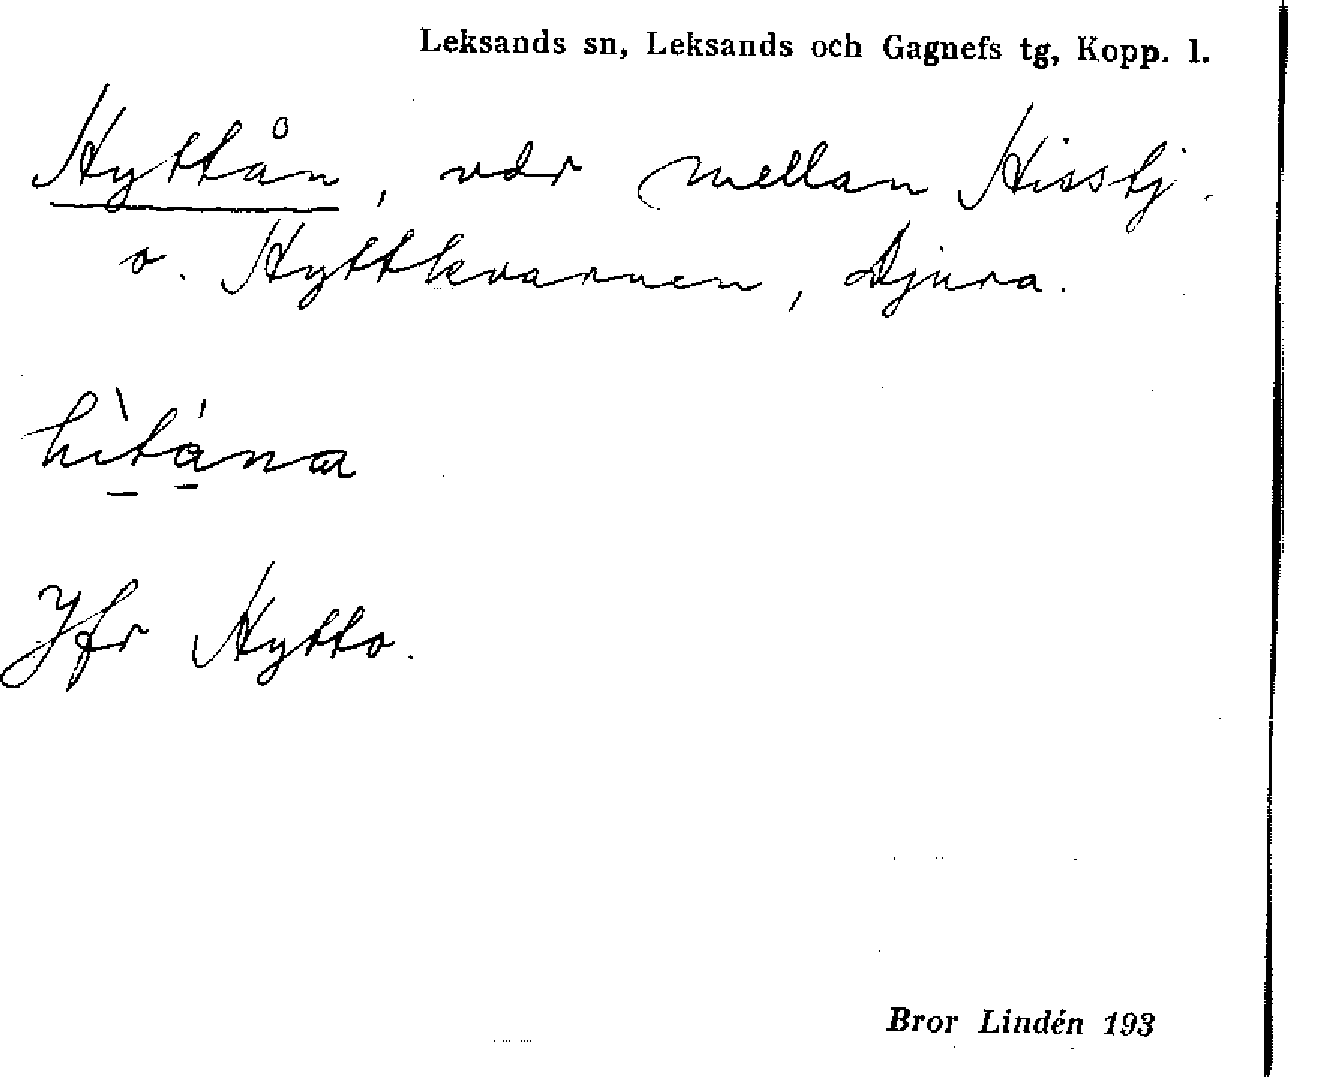 Leksands sn, Leksands och Gagnefs tg, Kopp. l.
Hyttån, vdr mellan Hisstj.
o. Hyttkvarnen, Djura.
hìtána
Jfr Hytto.
Bror Lindén 193